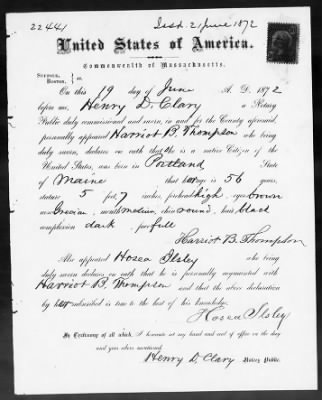 22441
Issd. 21 June 1872
United States of America.
Commonwealth of Massachusetts.
SUFFOLK,
BOSTON,
On this 19 day of June A. D. 1872
before me, Henry D. Clary a Notary
Public duly commissioned and sworn, in and for the County aforesaid,
personally appeared Harriot B. Thompson who being
duly sworn, declares on oath that she is a native Citizen of the
United States, was born in Portland State
of Maine that her age is 56 years,
stature 5 feet 7 inches, forehead high, eyes brown
nose Grecian, mouth medium, chin round, hair black
complexion dark, face full
Harriot B. Thompson
Also appeared Hosea Ilsley who being
duly sworn declares on oath that he is personally acquainted with
Harriot B. Thompson and that the above declaration
by her subscribed is true to the best of his knowledge.
Hosea Ilsley
In Testimony of all which, I hereunto set my hand and seal of office on the day
and year above mentioned.
Henry D. Clary Notary Public.